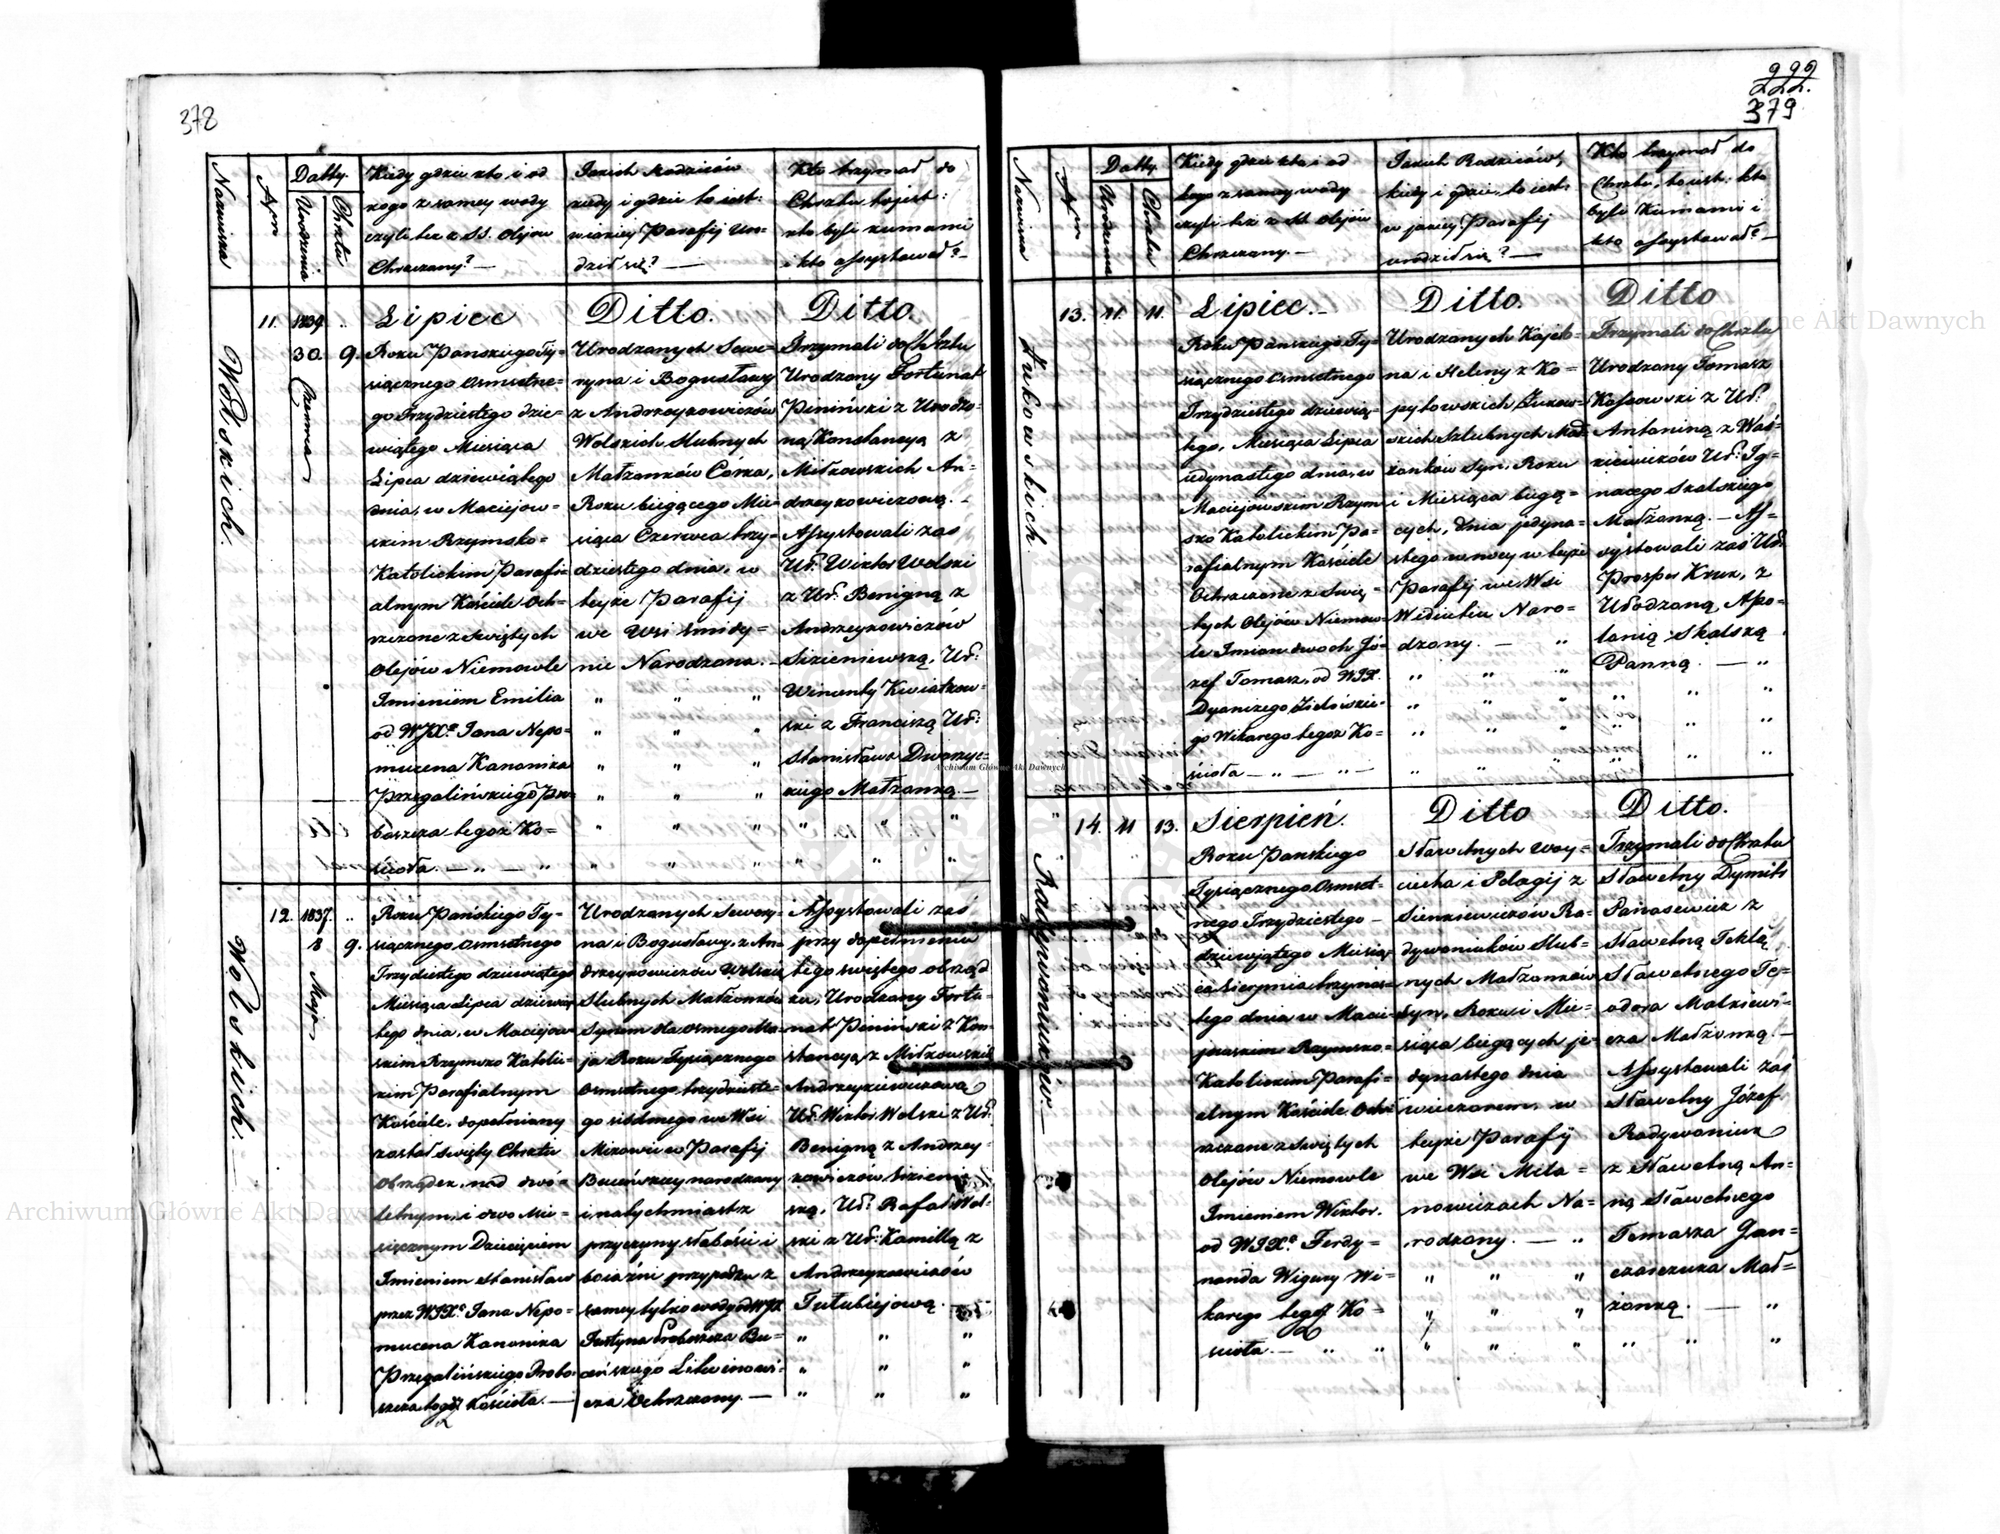 378
Nazwiska
Nrm
Datty.
Urodzenia
Chrztu
Kiedy gdzie kto i od
kogo z samey wody
czyli też z SS. Olejów
Chrzczony? —
Jakich Rodziców
kiedy i gdzie to iest:
w iakiey Parafij uro-
dził się? —
Kto trzymał do
Chrztu to jest:
kto byli kumami
i kto assystował? —
Wolskich.
11.
1839.
30.
Czerwca
9.
Lipiec
Roku Pańskiego Ty-
siącznego Osmsetne-
go Trzydziestego dzie-
wiątego Miesiąca
Lipca dziewiątego
dnia, w Maciejow-
skim Rzymsko-
Katolickim Parafi-
alnym Kościele Och-
rzczone z Swiętych
Olejów Niemowle
Imieniem Emilia
od WJXa Jana Nepo-
mucena Kanonika
Przegalińskiego Pro-
boszcza tegoż Ko-
ścioła. — „ — „
Ditto.
Urodzonych Sewe-
ryna i Bogusławy
z Andrzeykowiczów
Wolskich slubnych
Małżonków Córka,
Roku biegącego Mie-
siąca Czerwca trzy-
dziestego dnia, w
teyże Parafij
we Wsi
nie Narodzona. —
Ditto.
Trzymali do Chrztu
Urodzony Fortunat
Peniński z Urodzo-
ną Konstancyą z
Miłkowskich An-
drzeykowiczową. —
Assystowali zaś
Ur: Wiktor Wolski
z Ur: Benigną z
Andrzeykowiczów
Sizieniewską, Ur:
Wincenty Kwiatkow-
ski z Franciszką Ur:
Stanisława Dworzyc-
kiego Małżonką. —
Wolskich. —
12.
1837.
8
Maja
9.
Roku Pańskiego Ty-
siącznego Osmsetnego
Trzydziestego dziewiątego
Miesiąca Lipca dziewią-
tego dnia, w Maciejow-
skim Rzymsko Katolic-
kim Parafialnym
Kościele, dopełniany
został święty Chrztu
Obrządek, nad dwó-
letnym, i dwo Mie-
sięcznym Dziecięciem
Imieniem Stanisław
przez WJXa Jana Nepo-
mucena Kanonika
Przegalińskiego Probo-
szcza tegoż Kościoła. —
Urodzonych Sewery-
na i Bogusławy, z An-
drzeykowiczów Wolskich
Slubnych Małżonków
Synem dla osmego Ma-
ja Roku Tysiącznego
Osmsetnego trzydzieste-
go siódmego we Wsi
Mizowie w Parafij
narodzony
i natychmiast z
przyczyny słabości i
boiaźni przypadku z
samey tylko wody od WJX
Justyna Proboszcza Bu-
ceńskiego Litwinowi-
cza Ochrzczony. —
Assystowali zaś
przy dopełnieniu
tego świętego obrząd-
ku, Urodzony Fortu-
nat Peniński z Kon-
stancyą z Miłkowskich
Andrzeykiewiczową
Ur: Wiktor Wolski z Ur:
Benigną z Andrzey-
kowiczów Sizieniew-
ską, Ur: Rafał Wol-
ski z Ur: Kamillą z
Andrzeykowiczów
Tułubiejową.
222
222.
379
Nazwiska
Nrm
Datty.
Urodzenia
Chrztu
Kiedy gdzie kto i od
kogo z samey wody
czyli też z SS. Olejów
Chrzczony. —
Jakich Rodziców,
kiedy i gdzie, to iest:
w jakiey Parafij
urodził się? —
Kto trzymał do
Chrztu, to iest: kto
byli Kumami i
kto assystował? —
Żukowskich.
13.
11.
11.
Lipiec. —
Roku Pańskiego Ty-
siącznego Osmsetnego
Trzydziestego dziewią-
tego, Miesiąca Lipca
iedynastego dnia, w
Maciejowskim Rzym-
sko Katolickim Pa-
rafialnym Kościele
Ochrzczone z Swię-
tych Olejów Niemow-
le Imion dwoch Jó-
zef Tomasz, od WJX.
go Wikarego tegoż Ko-
ścioła — „ — „ —
Ditto.
Urodzonych Kajeta-
na i Heleny z Ko-
pytowskich Żukow-
skich Szlubnych Mał-
żonków Syn, Roku
i Miesiąca biegą-
cych, dnia jedyna-
stego w nocy w teyże
Parafij we Wsi
Widiutiu Naro-
dzony. — „
Ditto
Trzymali do Chrztu
Urodzony Tomasz
Kossowski z Ur:
Antoniną z Waś-
kiewiczów Ur: Ig-
nacego Skalskiego
Małżonką. — As-
systowali zaś Ur:
Prosper Kruk, z
Urodzoną Apo-
lonią Skalską
Panną. — „
Radywoniuków —
14.
11
13.
Sierpień.
Roku Pańskiego
Tysiącznego Osmset-
nego Trzydziestego —
dziewiątego Miesią-
ca Sierpnia trzynas-
tego dnia w Macie-
jowskim Rzymsko-
Katolickim Parafi-
alnym Kościele Och-
rzczone z Swiętych
Olejów Niemowle
Imieniem Wiktor.
od WJXa Ferdy-
nanda Wigury Wi-
karego tegoż Ko-
ścioła. —
Ditto
Sławetnych Woy-
ciecha i Pelagij z
Sienkiewiczów Ra-
dywoniuków Slub-
nych Małżonków
Syn, Roku i Mie-
siąca biegących je-
dynastego dnia
wieczorem, w
teyże Parafij
we Wsi Mila-
nowiczach Na-
rodzony. — „
Ditto.
Trzymali do Chrztu
Sławetny Dymitr
Panasewicz z
Sławetną Teklą
Sławetnego Te-
odora Matkiewi-
cza Małżonką. —
Assystowali zaś
Sławetny Józef
Radywoniuk
z Sławetną An-
ną Sławetnego
Tomasza Jan-
czarzuka Mał-
żonką. — „
Archiwum Główne Akt Dawnych
Archiwum Główne Akt Dawnych
Archiwum Główne Akt Dawnych